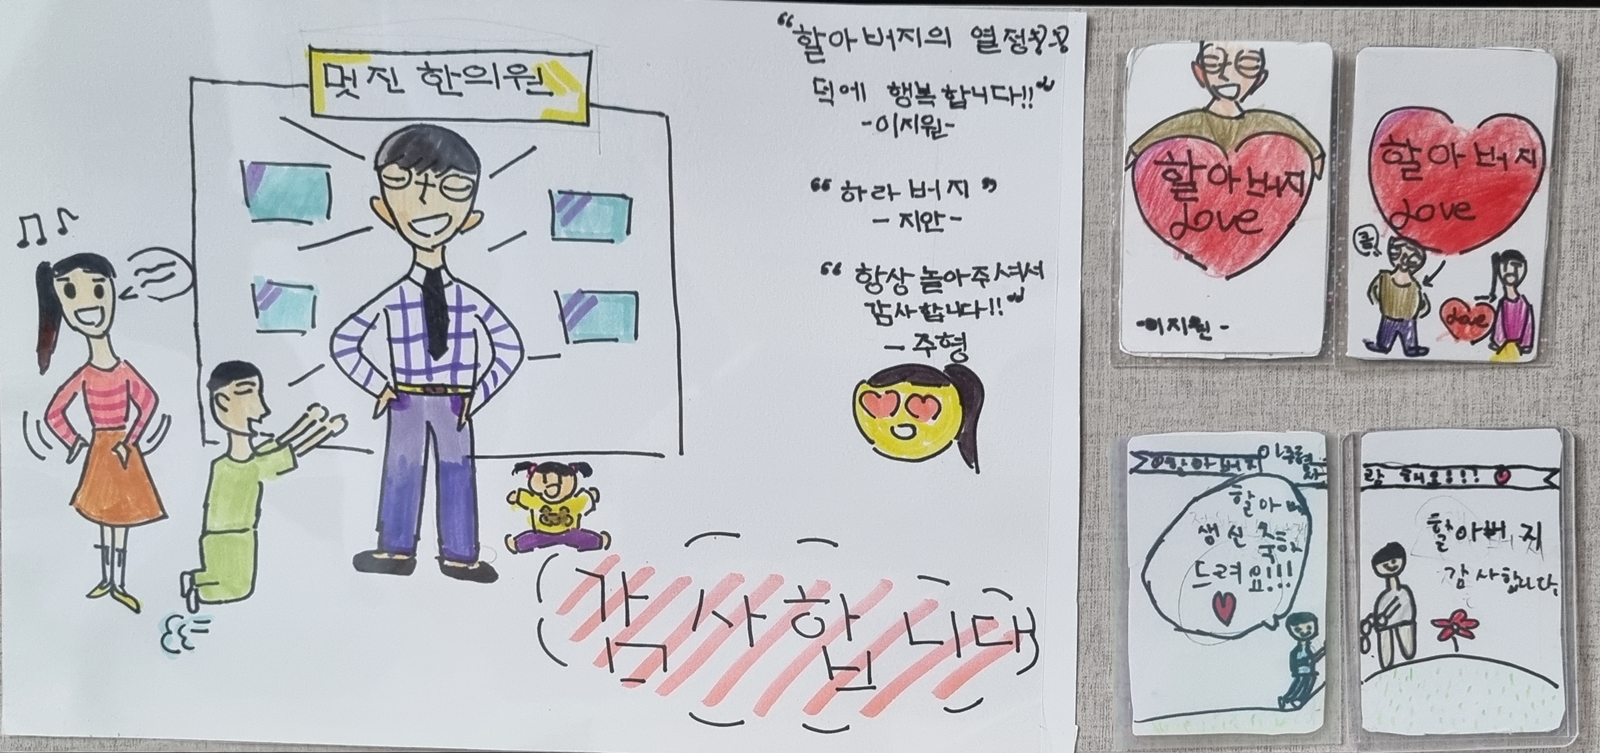 멋진 한의원
“할아버지의 열정
덕에 행복합니다!!”
-이지원-
“하라버지”
-지안-
“항상 놀아주셔서
감사합니다!!”
-주형
감사합니다
할아버지
Love
-이지원-
할아버지
Love
Love
할아버지
이주형
할아버
생신 축하
드려요!!!
랑해요!!!
할아버지
감사합니다